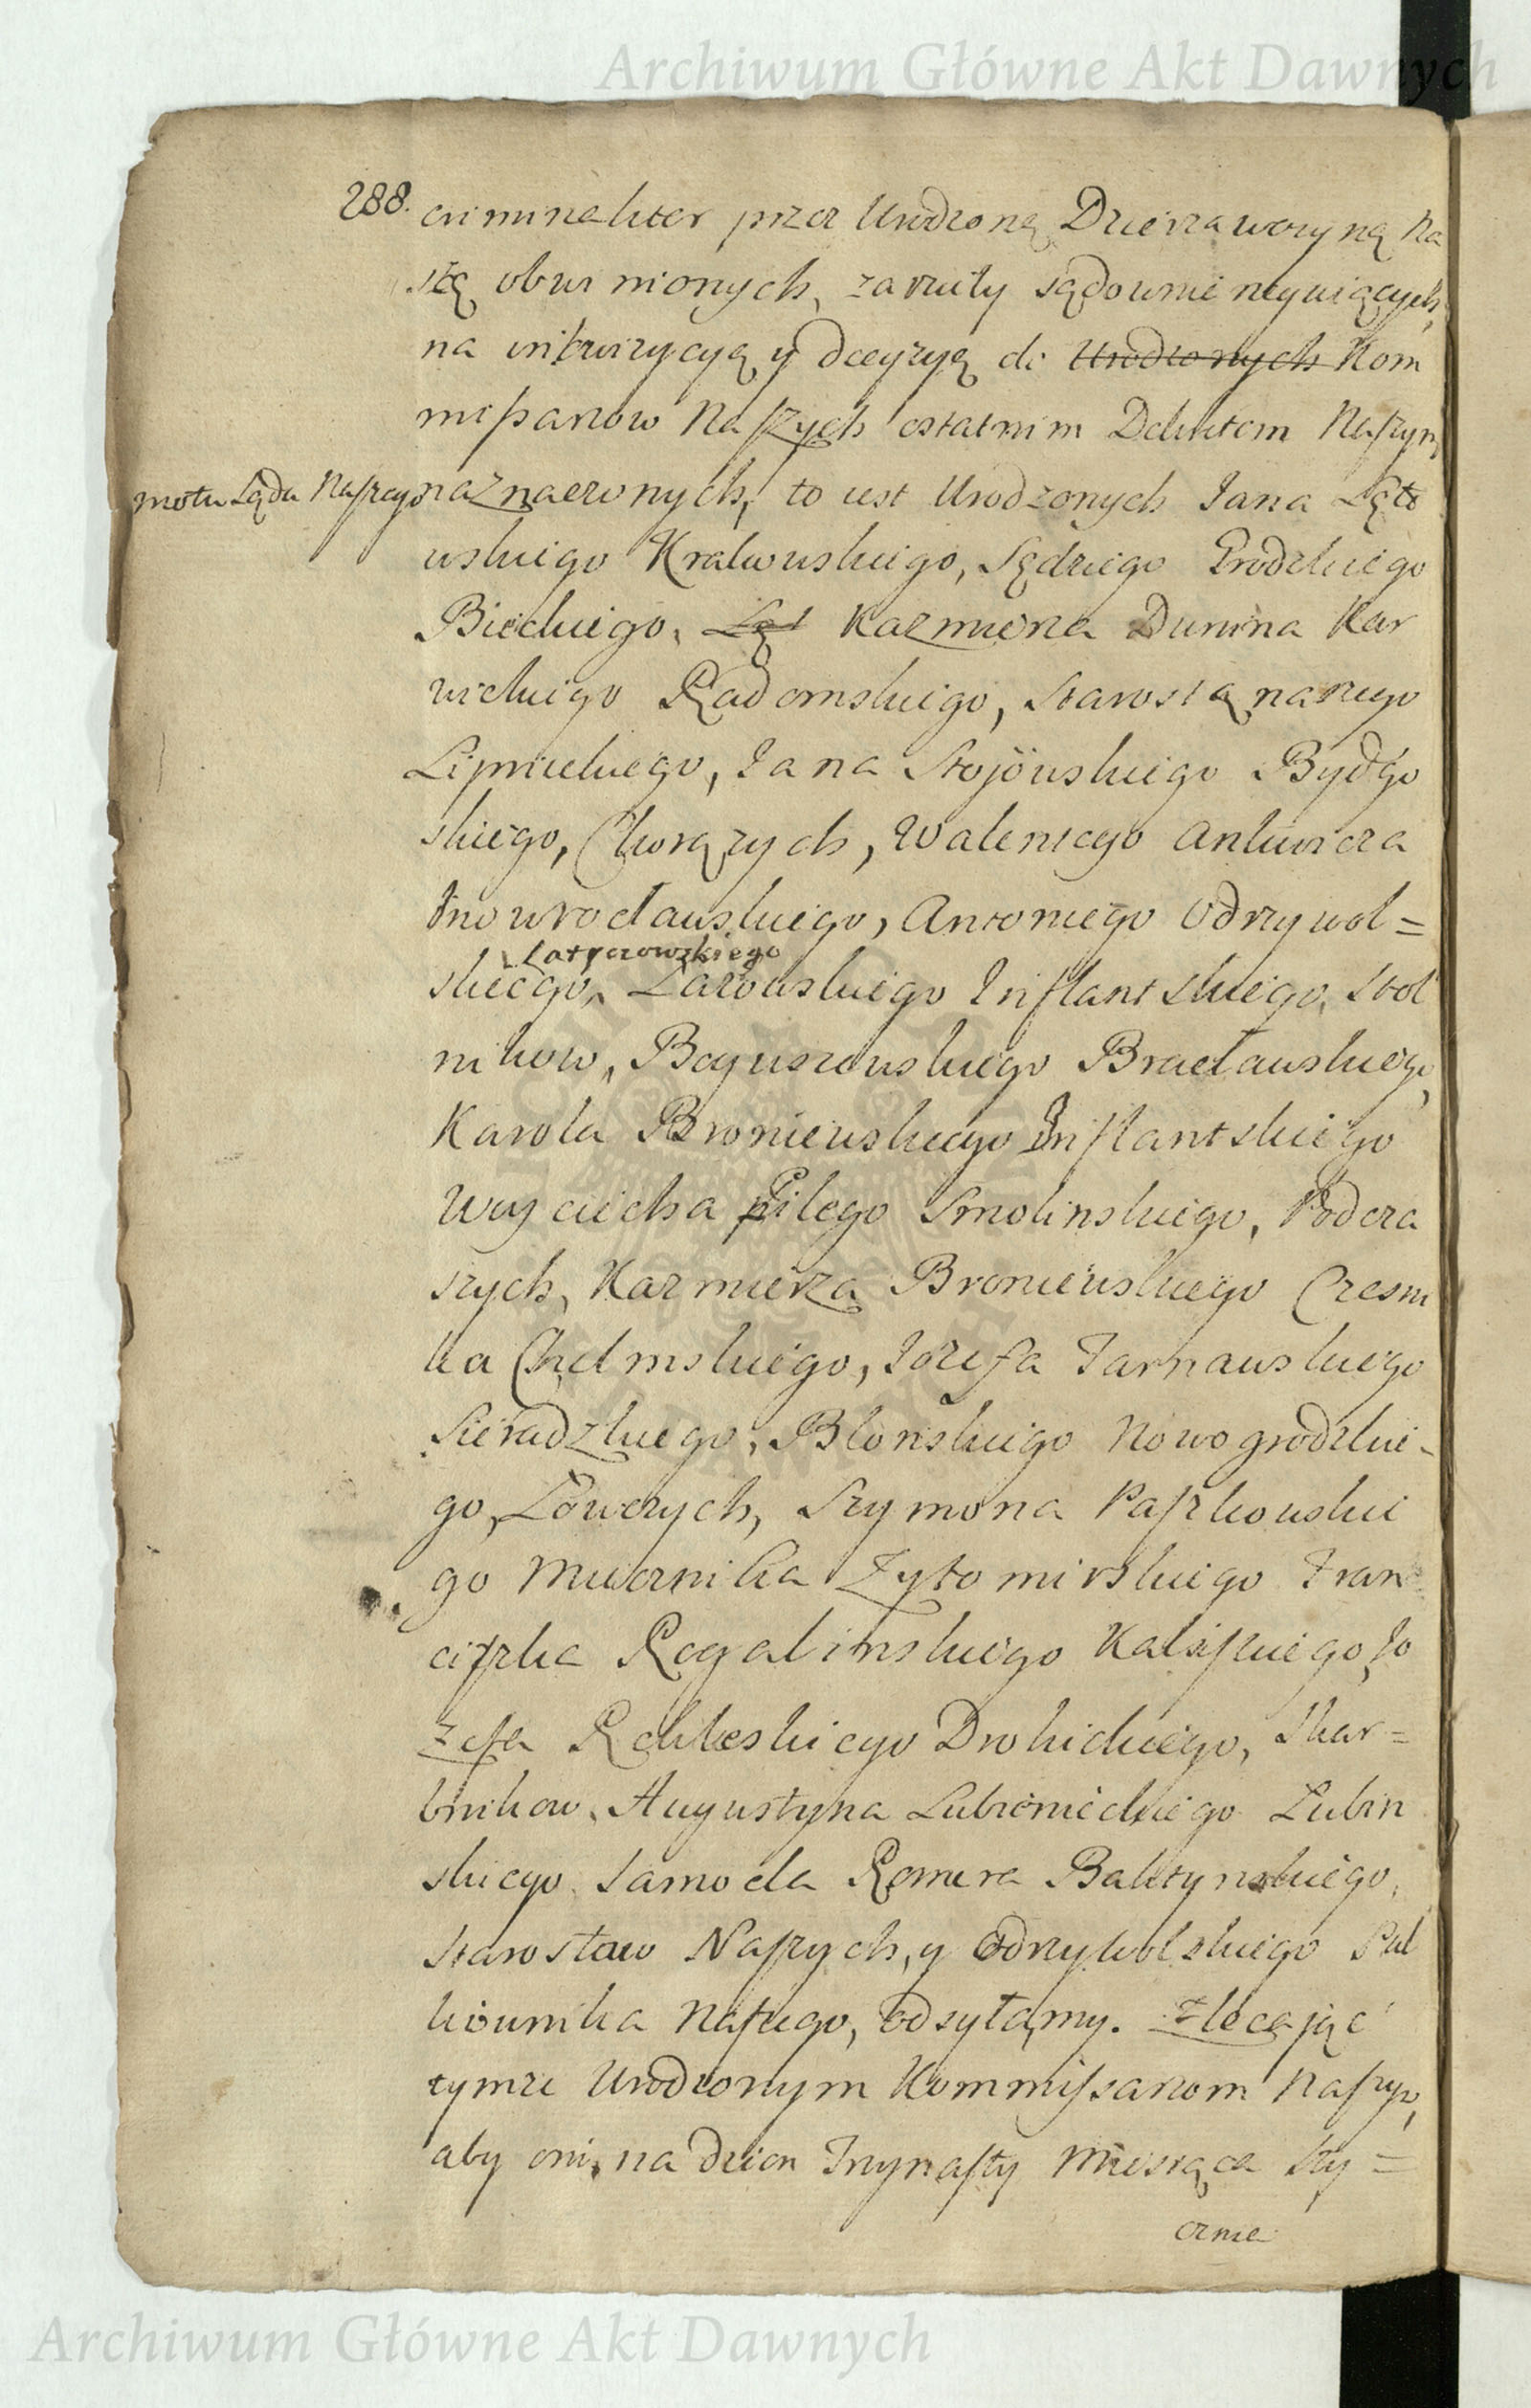 Archiwum Główne Akt Dawnych
288.
criminaliter przez Urodzoną Dzierzawczyną Na
szą obwinionych, zarzuty sądownie neguiących,
na inkwizycyą y decyzyą do Urodzonych Kom
missarzow Naszych ostatnim Dekretem Naszym
motu Sądu Naszego
naznaczonych, to iest Urodzonych Jana Łęto
wskiego Krakowskiego, Sędziego Grodzkiego
Bieckiego, Łęt Kazmierza Dunina Kar
wickiego Radomskiego, Starostą naszego
Lipnickiego, Jana Stojowskiego Bydgo
skiego, Chorązych, Walentego Ankwicza
Inowrocławskiego, Antoniego Odrzywol=
Latyczowskiego
skiego, Inflantskiego, Stol
nikow, Boguszowskiego Bracławskiego,
Karola Broniewskiego Inflantskiego
Woyciecha Pilego Smolinskiego, Podcza
szych, Kazmierza Broniewskiego Czesni
ka Chełmskiego, Jozefa Tarnawskiego
Sieradzkiego, Błonskiego Nowogrodzkie-
go, Łowczych, Szymona Paszkowskie
go Miecznika Zytomirskiego Fran
ciszka Rogalinskiego Kaliskiego, Jo
zefa Drohickiego, Skar=
bnikow, Augustyna Lubienieckiego Lubin
skiego Samoela Romera Baltynskiego,
Starostow Naszych, y Odrzywolskiego Puł
kownika Naszego, odsyłamy. Zlecając
tymze Urodzonym Kommissarzom Naszym,
aby oni, na dzien Trzynasty Miesiąca Sty=
cznia
Archiwum Główne Akt Dawnych